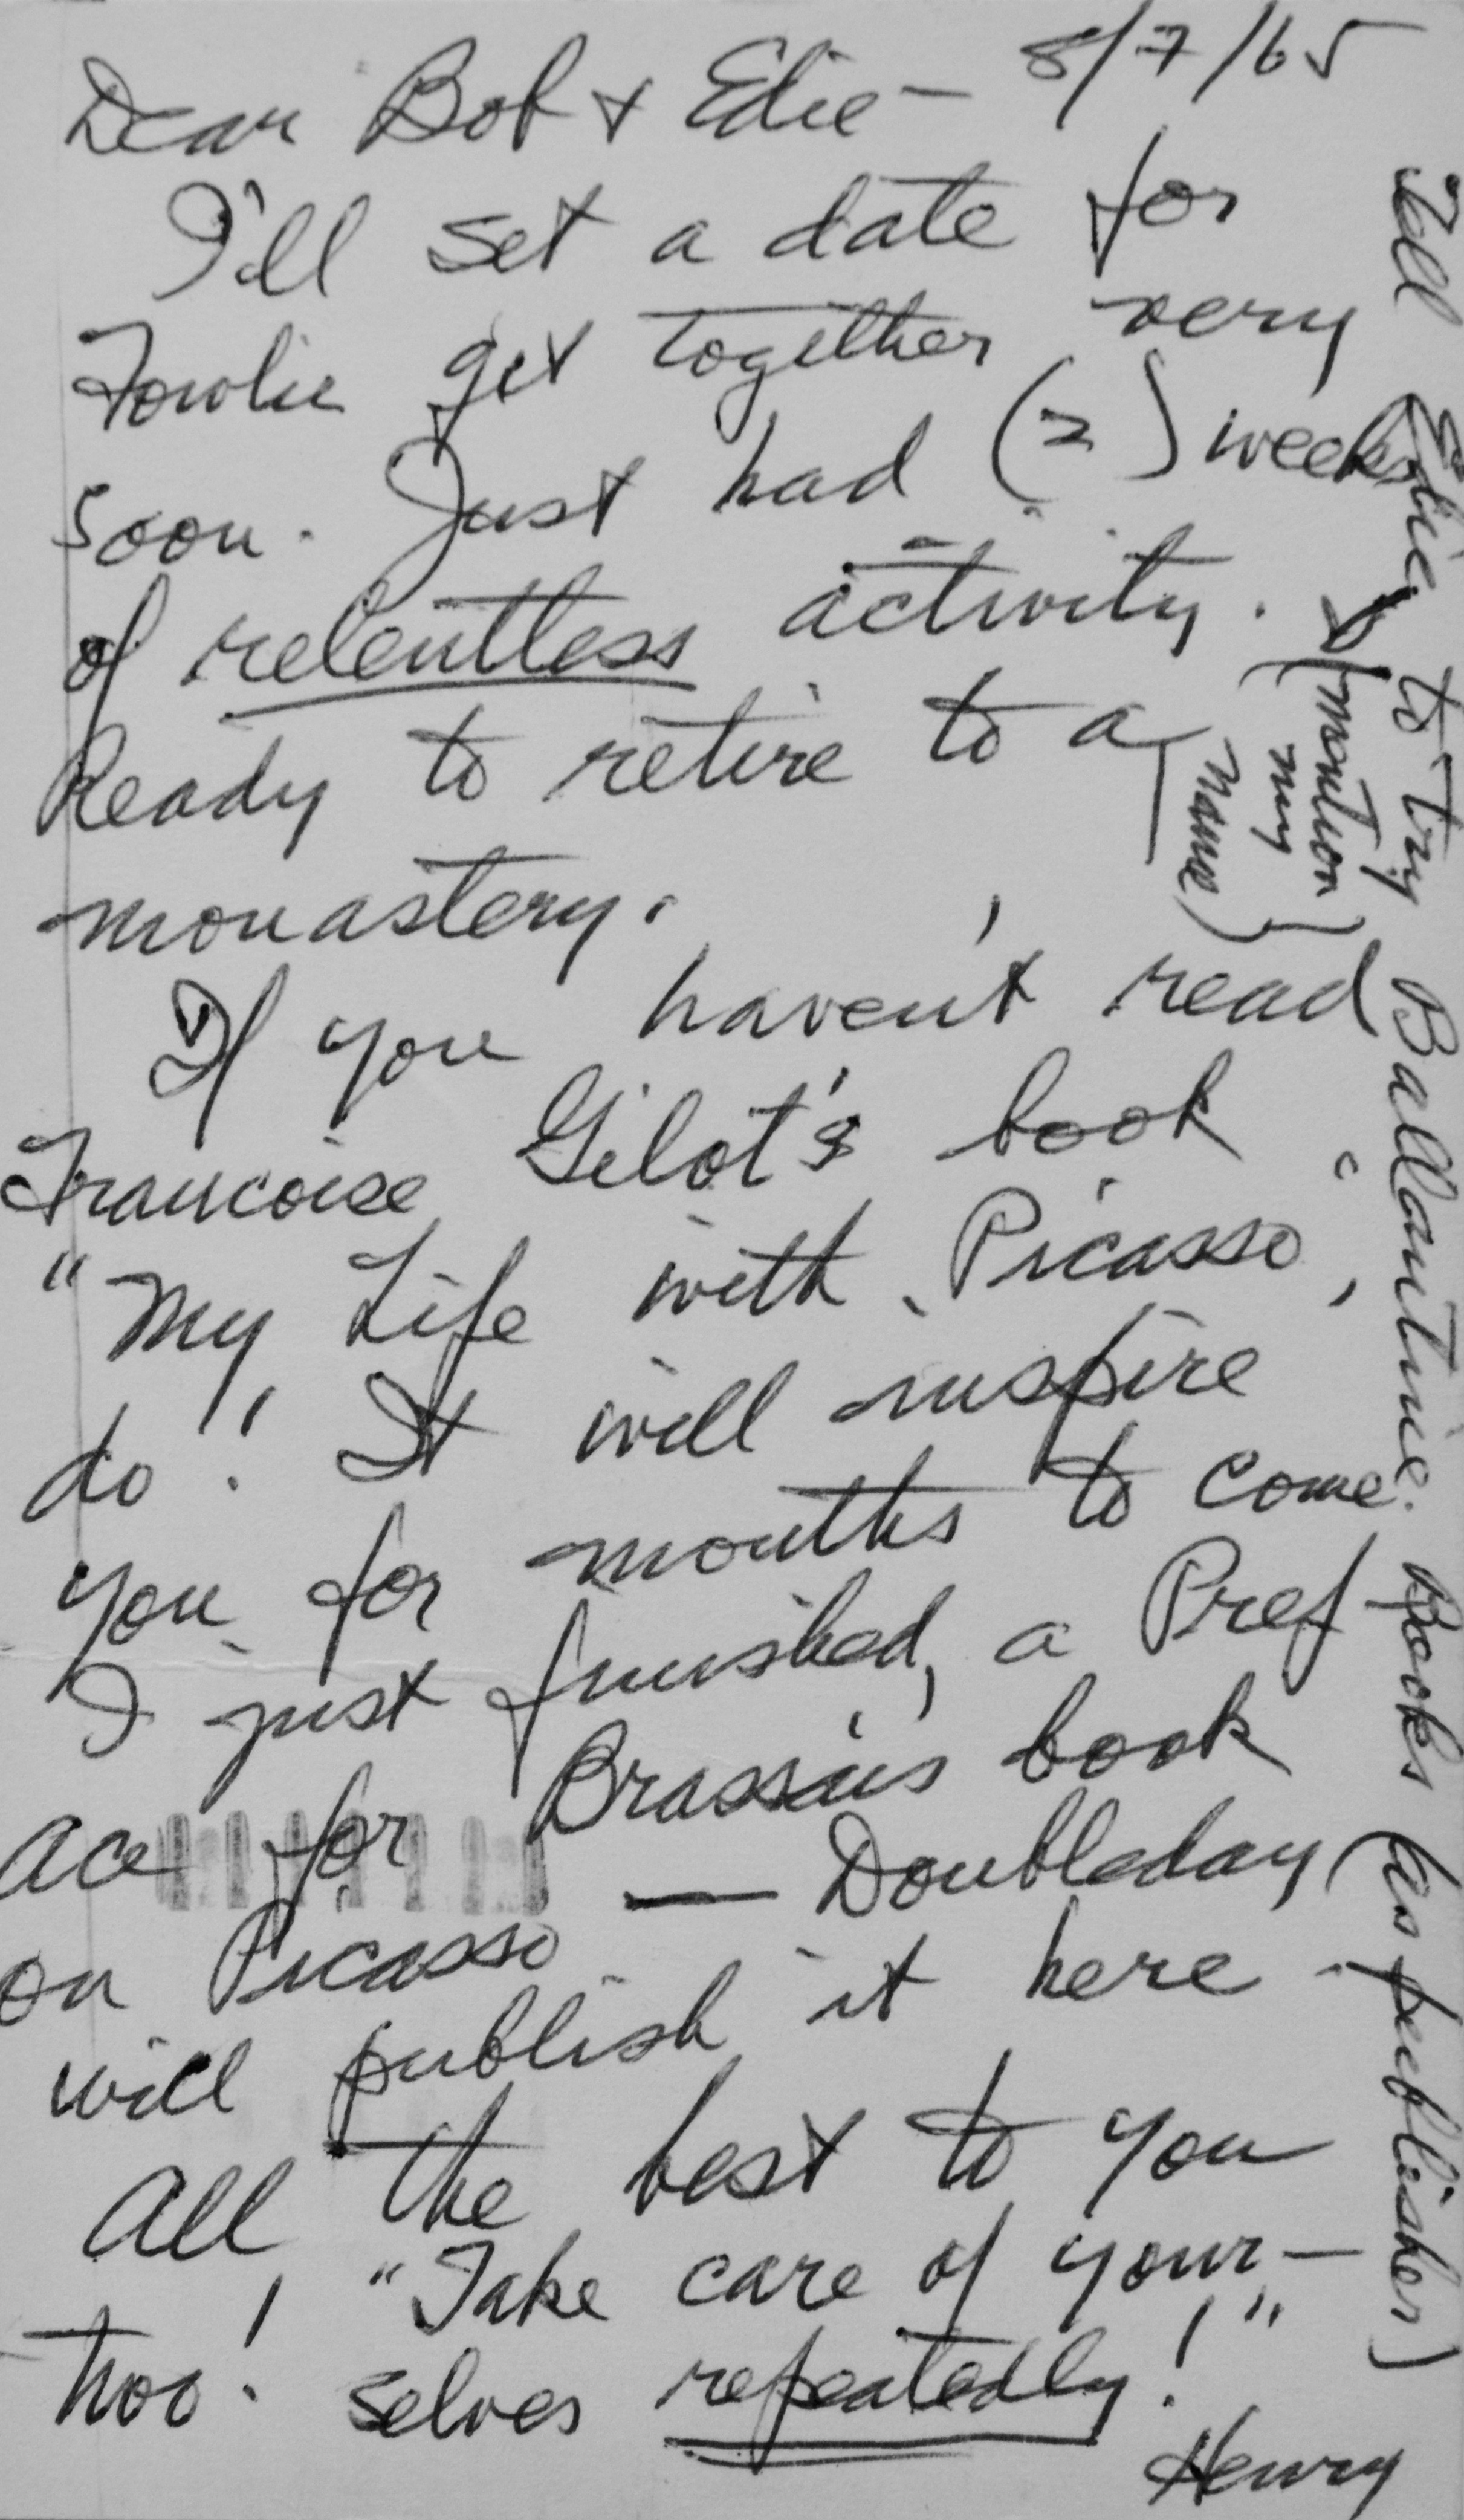 8/7/65
Dear Bob & Edie —
I'll set a date for
Fowlie get together very
soon. Just had (2) weeks
of relentless activity.
Ready to retire to a
monastery.
If you haven't read
Francoise Gilot's book
"My Life with Picasso,"
do! It will inspire
you for months to come.
I just finished a Pref-
ace for Brassai's book
on Picasso — Doubleday
will publish it here.
All the best to you
two! "Take care of your-
selves repeatedly!"
Henry
Tell Edie to try Ballantine Books (as publisher)
(mention
my
name)